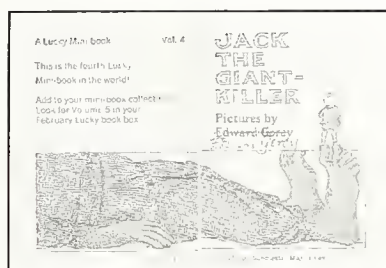 A Lucky Mini-book Vol. 4
This is the fourth Lucky
Mini-book in the world!
Add to your mini-book collecti
Look for Volume 5 in your
February Lucky book box
JACK
THE
GIANT-
KILLER
Pictures by
Edward Gorey